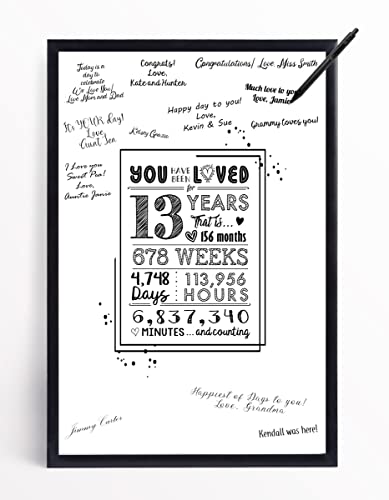 Today is a
day to
celebrate
We Love You!
Love Mom and Dad
Congrats!
Love,
Kate and Hunter
Congratulations! Love, Miss Smith
Much love to you
Love, Jamie
Happy day to you!
Love,
Kevin & Sue
Grammy Loves you!
It's YOUR day!
Love
Aunt Jen
Kasey Grace
I Love you
Sweet Pea!
Love,
Auntie Janie
YOU HAVE BEEN LOVED
for
13 YEARS
That is...
156 months
678 WEEKS
4,748 Days
113,956 HOURS
6,837,340
MINUTES ...and counting
Happiest of Days to you!
Love, Grandma
Jimmy Carter
Kendall was here!